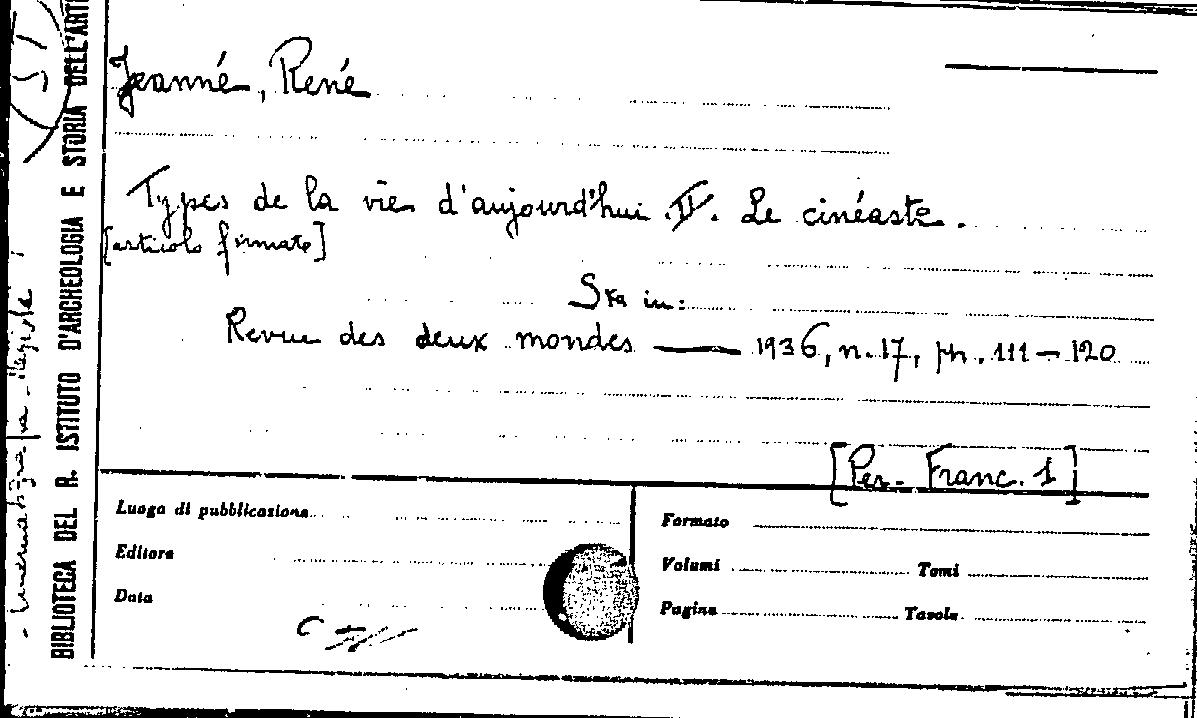 Jeanné, René
Types de la vie d'aujourd'hui. II. Le cinéaste.
[articolo firmato]
Sta in:
Revue des deux mondes — 1936, n. 17, pp. 111–120
[Per. Franc. 1]
Luogo di pubblicazione
Editore
Data
Formato
Volumi Tomi
Pagine Tavole
BIBLIOTECA DEL R. ISTITUTO D'ARCHEOLOGIA E STORIA DELL'ARTE